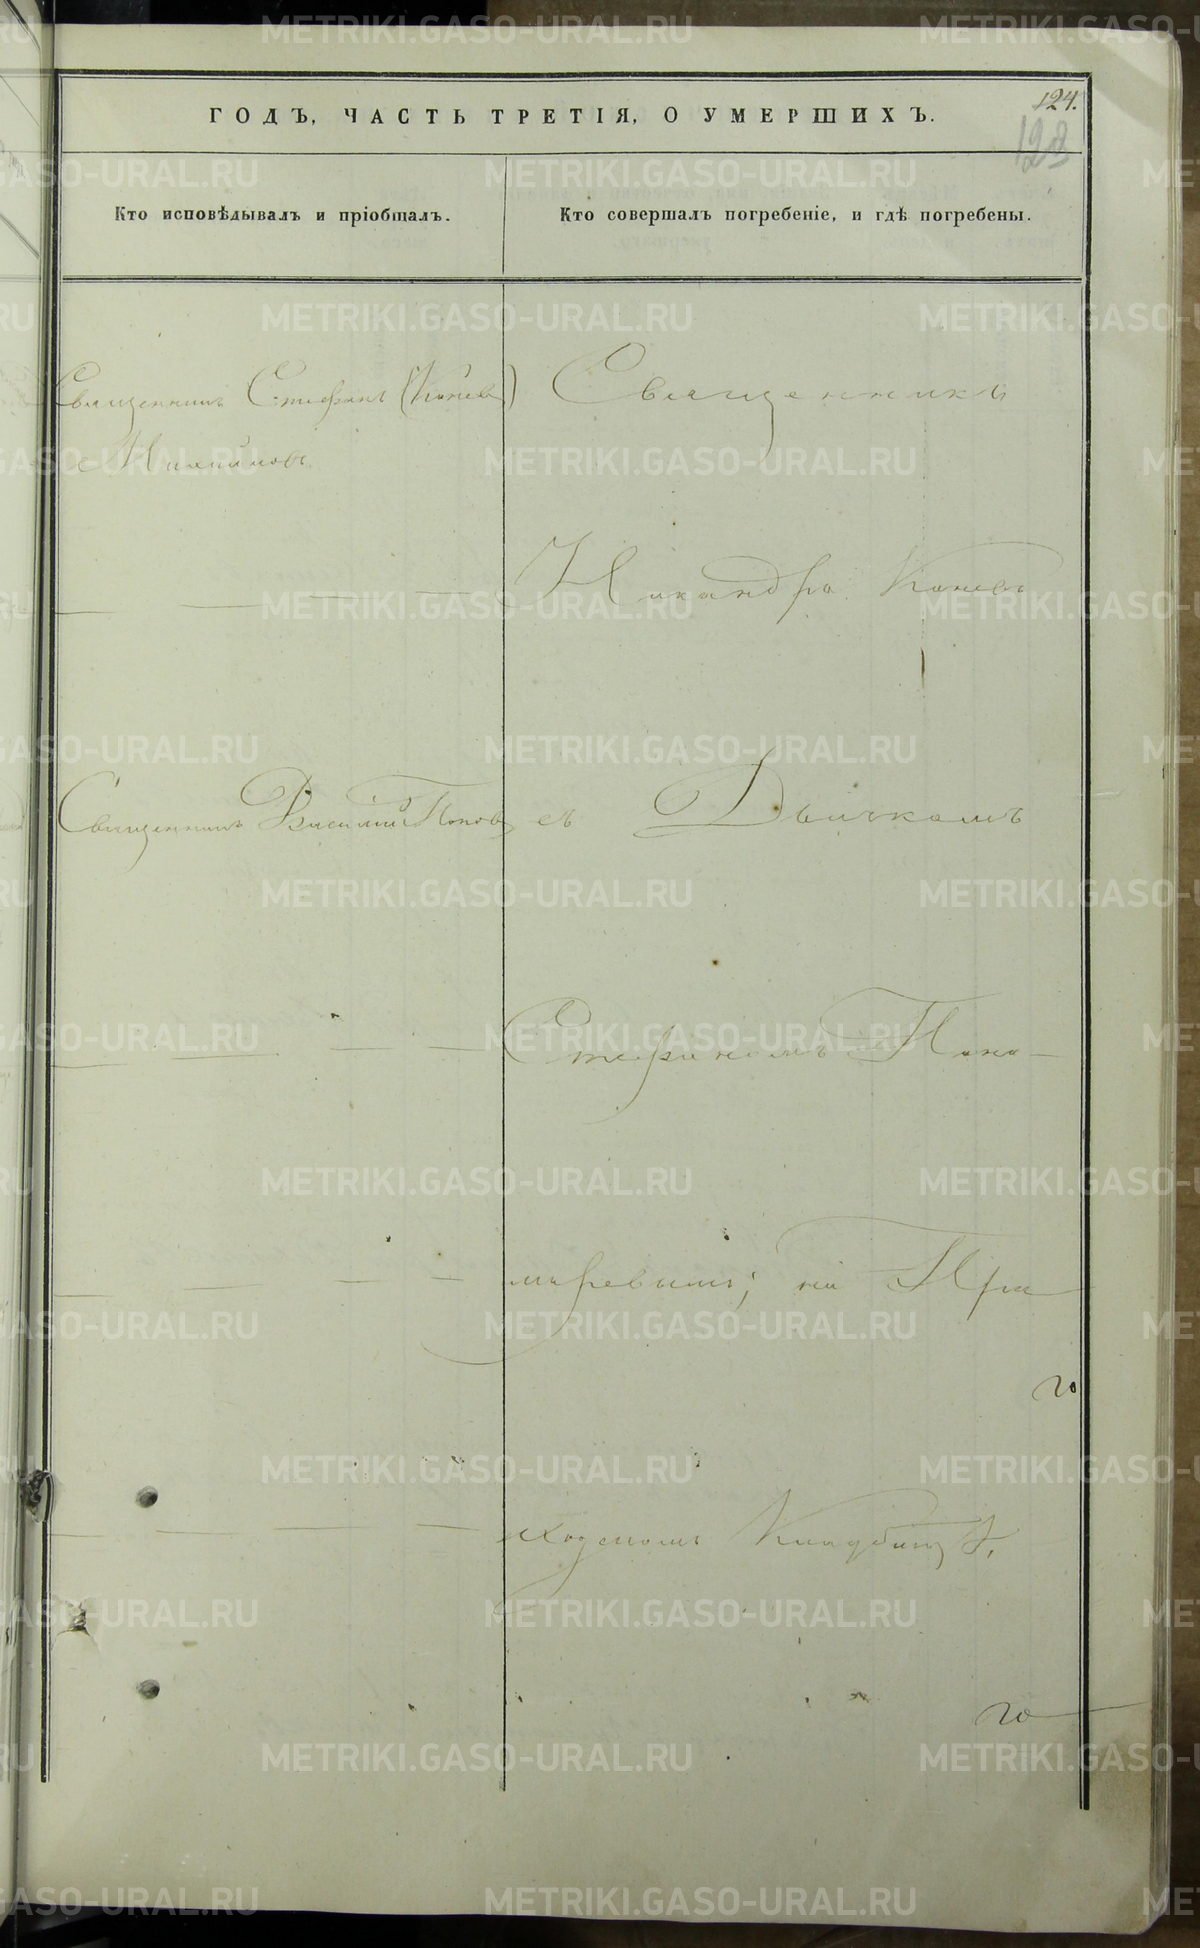 124.
123
ГОДЪ, ЧАСТЬ ТРЕТІЯ, О УМЕРШИХЪ.
Кто исповѣдывалъ и пріобщалъ.
Кто совершалъ погребеніе, и гдѣ погребены.
Священникъ Стефанъ (Коневъ)
Священникъ
Никандръ Коневъ
Священникъ Василій Поповъ
съ Дьячкомъ
Стефаномъ Поно-
маревымъ; на При
го
ходскомъ Кладбищѣ.
го
METRIKI.GASO-URAL.RU